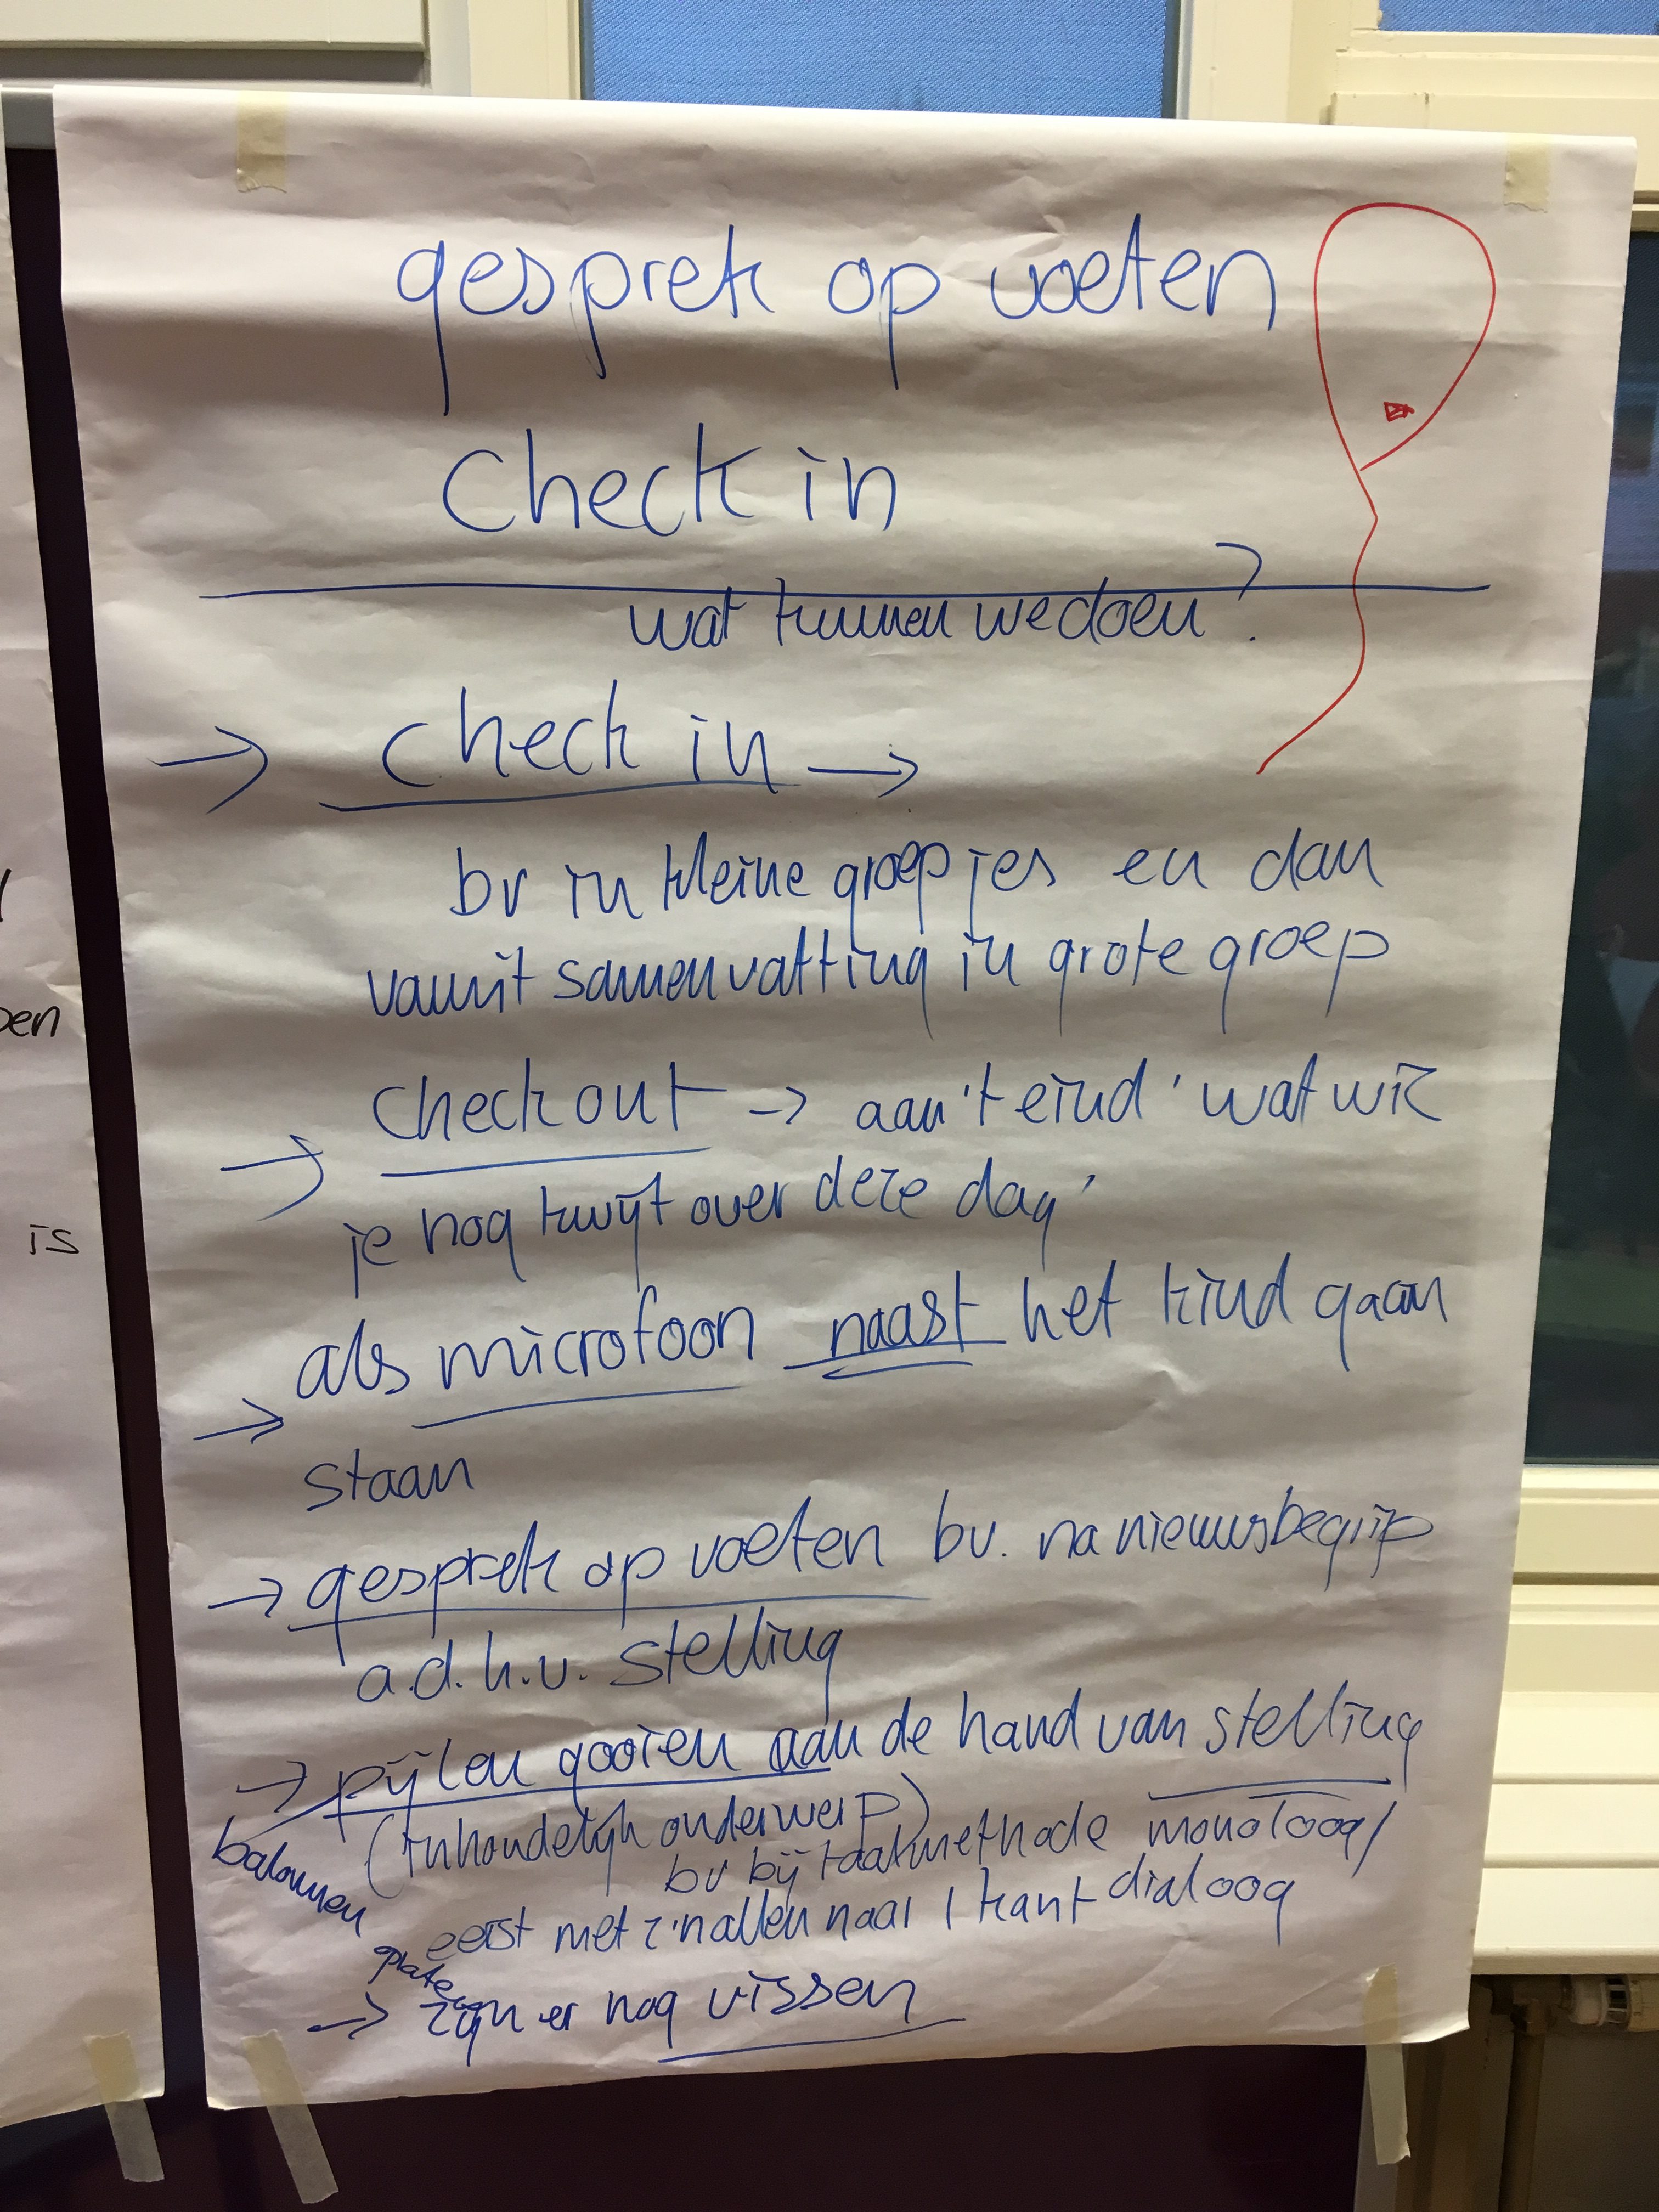 gesprek op voeten
Check in
wat kunnen we doen?
→ check in →
bv in kleine groepjes en dan
vanuit samenvatting in grote groep
→ check out → aan 't eind 'wat wil
je nog kwijt over deze dag'
→ als microfoon naast het kind gaan
staan
→ gesprek op voeten bv. na nieuwsbegrip
a.d.h.v. stelling
→ pijlen gooien aan de hand van stelling
ballonnen
(inhoudelijk onderwerp)
bv bij taalmethode monoloog/
eerst met z'n allen naar 1 kant dialoog
→ zijn er nog vissen
pen
is